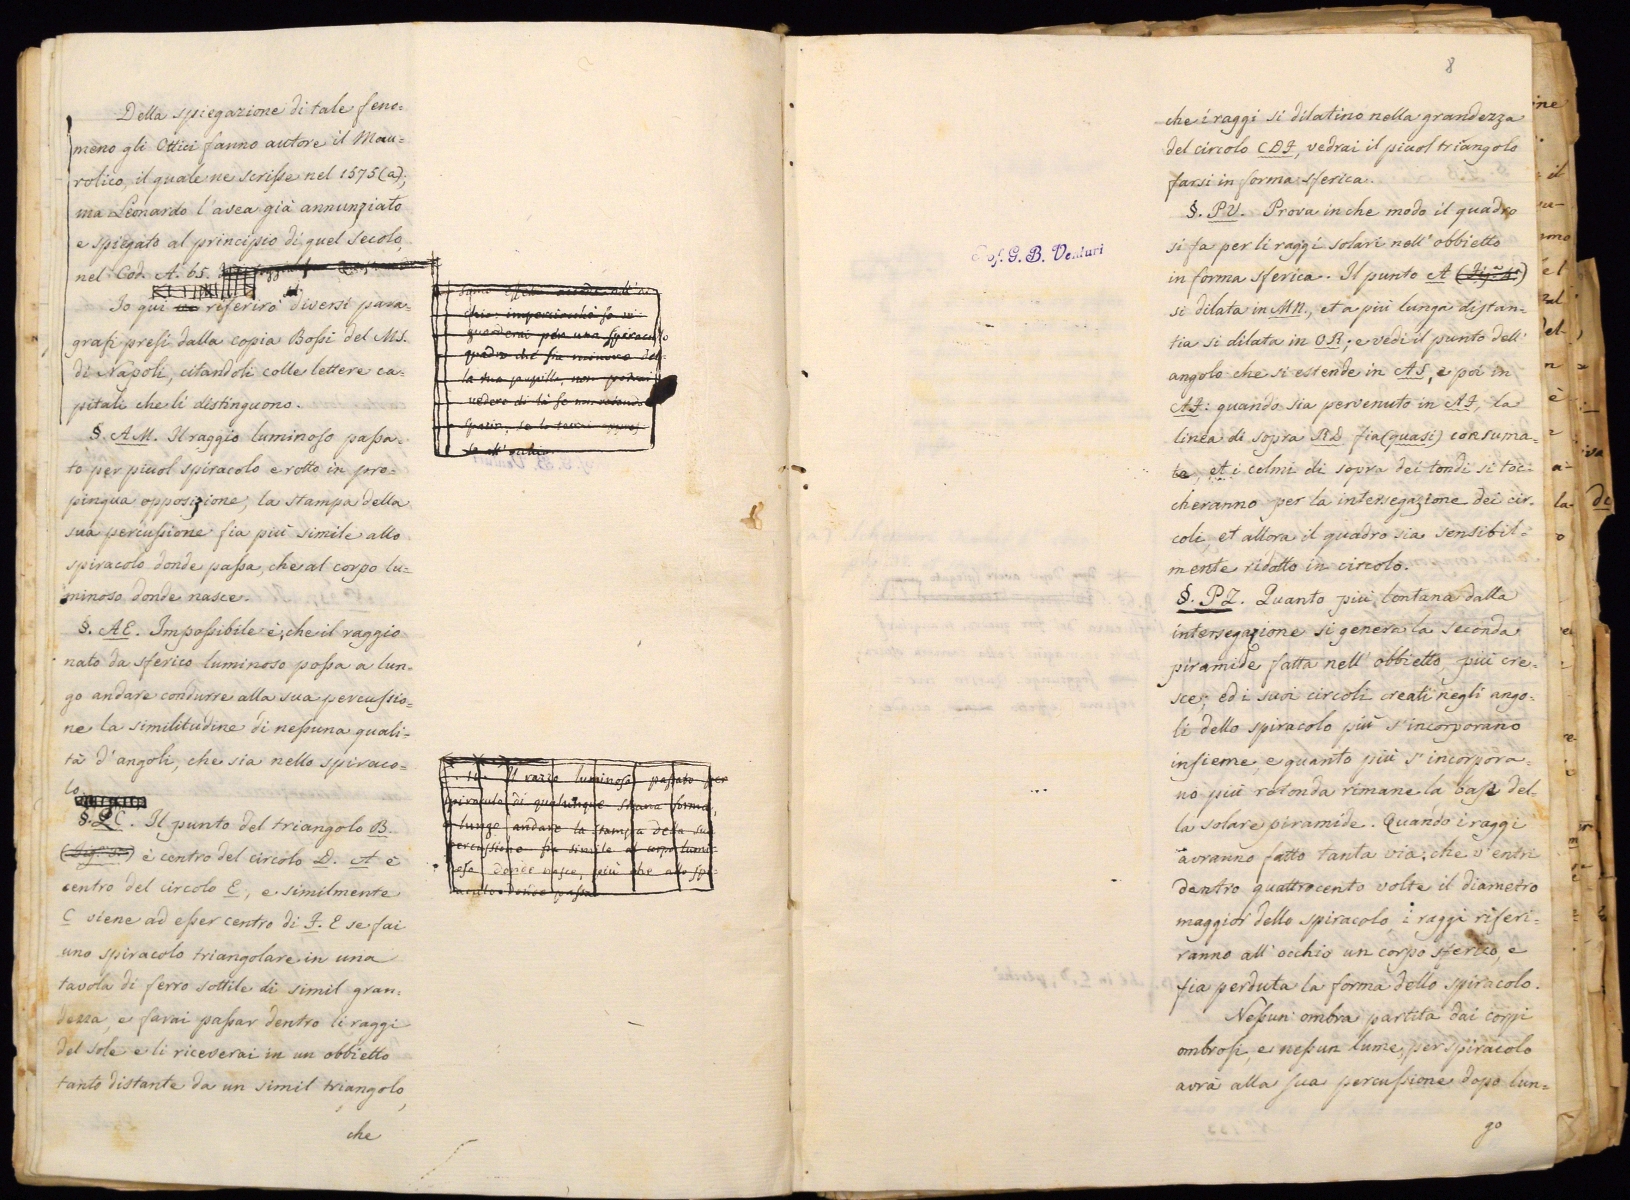 Della spiegazione di tale feno=
meno gli Ottici fanno autore il Mau=
rolico, il quale ne scrisse nel 1575 (a);
ma Leonardo l'avea già annunziato
e spiegato al principio di quel secolo,
nel Cod. A. 65.
Io qui riferirò diversi para=
grafi presi dalla copia Bossi del MS.
di Napoli, citandoli colle lettere ca=
pitali che li distinguono.
§. AM. Il raggio luminoso passa=
to per picuol spiracolo e rotto in pro=
pinqua opposizione, la stampa della
sua percussione fia più simile allo
spiracolo donde passa, che al corpo lu=
minoso donde nasce.
§. AE. Impossibile è, che il raggio
nato da sferico luminoso possa a lun=
go andare condurre alla sua percussio=
ne la similitudine di nessuna quali=
tà d'angoli, che sia nello spiraco=
lo.
§. QC. Il punto del triangolo B.
(Fig.ª) è centro del circolo D. A è
centro del circolo E, e similmente
C viene ad esser centro di F. E se fai
uno spiracolo triangolare in una
tavola di ferro sottile di simil gran=
dezza, e farai passar dentro li raggi
del sole e li riceverai in un obbietto
tanto distante da un simil triangolo,
che
occhio: imperciocchè se si
guarderai per una spiracolo
quadro che sia minore del=
la tua pupilla, non potrai
vedere di là se non rotondo
spazio, se lo terrai appres=
so all'occhio.
Il razzo luminoso passato per
spiraculo di qualunque strana forma,
a lungo andare la stampa della sua
percussione fia simile al corpo lumi=
noso donde nasce, più che allo spi=
raculo donde passa
8
Prof. G. B. Venturi
che i raggi si dilatino nella grandezza
del circolo CDF, vedrai il picuol triangolo
farsi in forma sferica.
§. PV. Prova in che modo il quadro
si fa per li raggi solari nell'obbietto
in forma sferica. Il punto A (Fig.ª 4ª)
si dilata in MN, et a più lunga distan=
tia si dilata in OR; e vedi il punto dell'
angolo che si estende in AS, e poi in
AF: quando sia pervenuto in AF, la
linea di sopra RL fia (quasi) consuma=
ta, et i colmi di sopra dei tondi si toc=
cheranno per la intersegazione dei cir=
coli, et allora il quadro sia sensibil=
mente ridotto in circolo.
§. PZ. Quanto più lontana dalla
intersegazione si genera la seconda
piramide fatta nell'obbietto, più cre=
sce; ed i suoi circoli creati negli ango=
li dello spiracolo più s'incorporano
insieme, e quanto più s'incorpora=
no più rotonda rimane la base del=
la solare piramide. Quando i raggi
avranno fatto tanta via, che v'entri
dentro quattrocento volte il diametro
maggior dello spiracolo i raggi riferi=
ranno all'occhio un corpo sferico, e
fia perduta la forma dello spiracolo.
Nessun'ombra partita dai corpi
ombrosi, e nessun lume, per spiracolo
avrà alla sua percussione dopo lun=
go